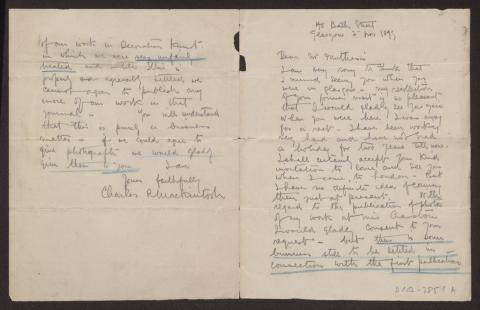 140 Bath Street
Glasgow 2 Nov 1899
Dear Mr Muthesius
I am very sorry to think that
I missed seeing you when you
were in Glasgow - my recollection
of your former visit is so pleasant
that I would gladly see you again
when you were here I was away
for a rest. I have been working
very hard and have not had
a holiday for two years till now.
I shall certainly accept your kind
invitation to come and see you
when I come to London - But
I have no definite idea of coming
there just at present. With
regard to the publication of photos
of my work at Miss Cranston
I would gladly consent to your
request - but there is some
business still to be settled in
connection with the first publication
of our work in Decorative Kunst
in which we were very unfairly
treated and until this is
properly and agreeably settled we
cannot agree to publish any
more of our work in that
journal - You will understand
that this is purely a business
matter - if we could agree to
give photographs we would gladly
give them to you. I am
Yours faithfully
Charles R. Mackintosh
D102-2851 A